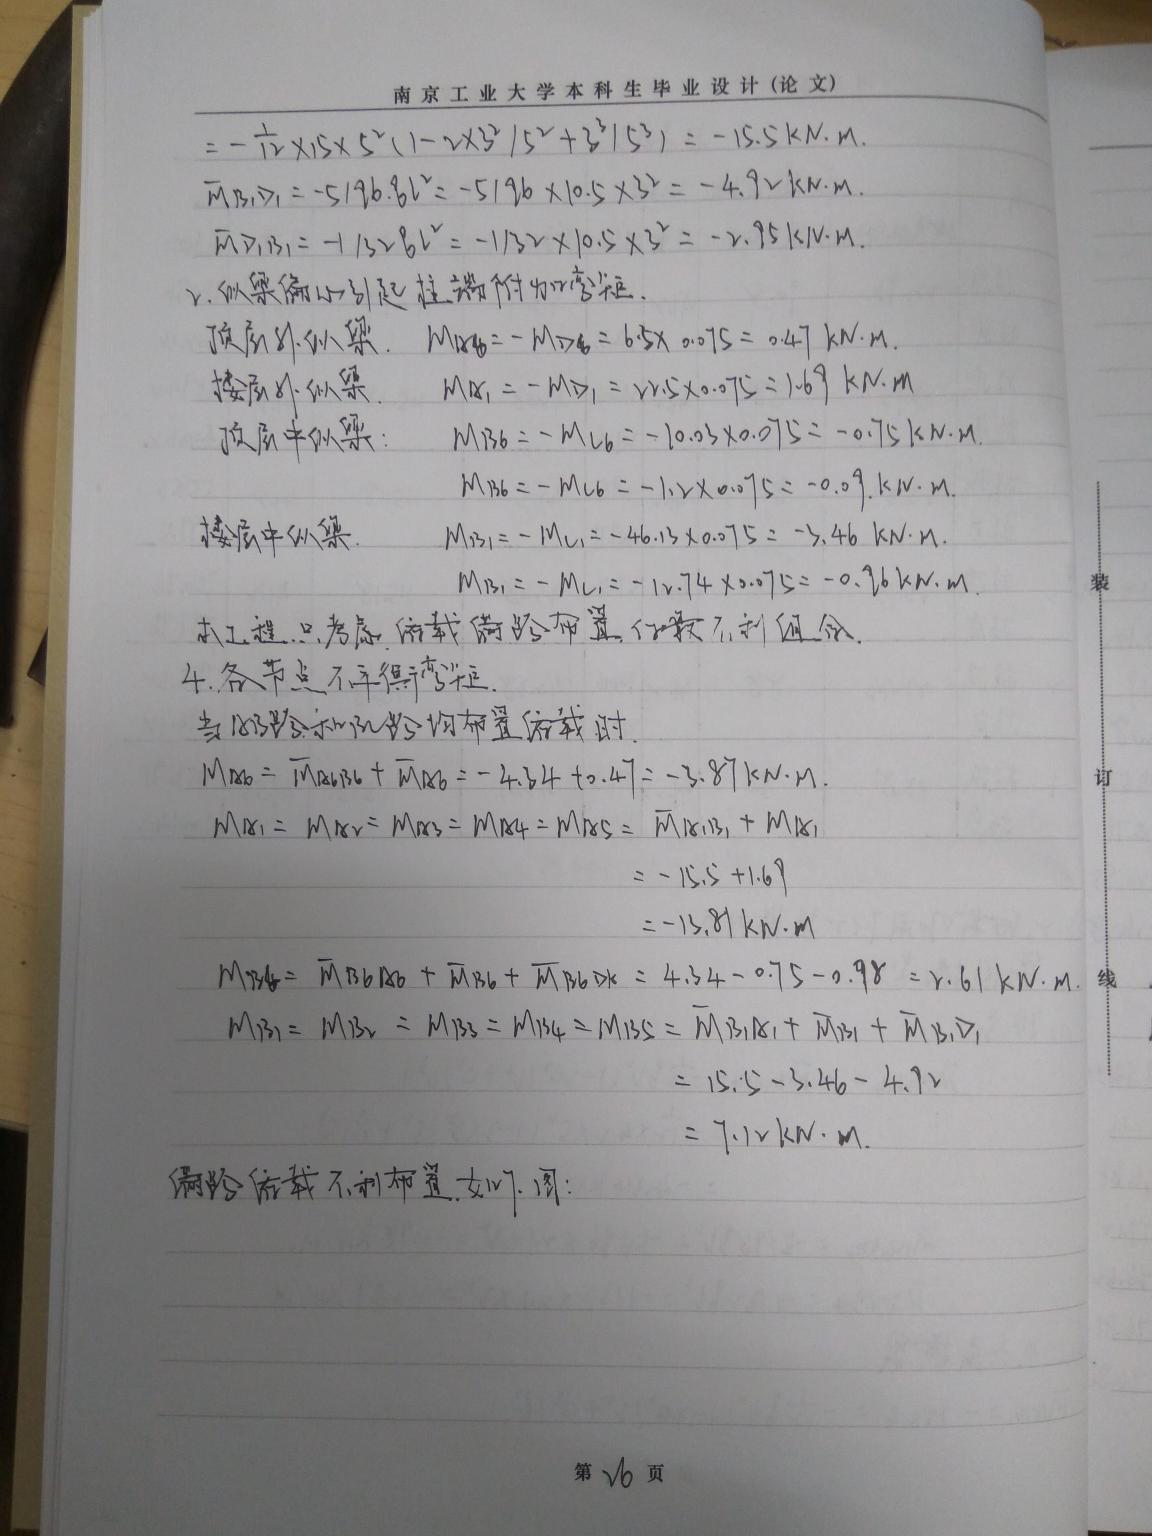 南京工业大学本科生毕业设计(论文)
= -1/12×15×5²(1-2×3²/5²+3³/5³) = -15.5 kN·m.
M̄B₁D₁ = -5/96.gl² = -5/96×10.5×3² = -4.92 kN·m.
M̄D₁B₁ = -1/32gl² = -1/32×10.5×3² = -2.95 kN·m.
2. 纵梁偏心引起柱端附加弯矩.
顶层外纵梁. MA6 = -MD6 = 6.5×0.075 = 0.47 kN·m.
楼层外纵梁. MA1 = -MD1 = 22.5×0.075 = 1.69 kN·m
顶层中纵梁: MB6 = -MC6 = -10.03×0.075 = -0.75 kN·m.
MB6 = -MC6 = -1.2×0.075 = -0.09 kN·m.
楼层中纵梁. MB1 = -MC1 = -46.13×0.075 = -3.46 kN·m.
MB1 = -MC1 = -12.74×0.075 = -0.96 kN·m.
本工程只考虑活载满跨布置, 最不利组合.
4. 各节点不平衡弯矩.
当AB跨和BC跨均布置活载时.
MA6 = M̄A6B6 + M̄A6 = -4.34+0.47 = -3.87 kN·m.
MA1 = MA2 = MA3 = MA4 = MA5 = M̄A1B1 + MA1
= -15.5+1.69
= -13.81 kN·m
MB6 = M̄B6A6 + M̄B6 + M̄B6D6 = 4.34-0.75-0.98 = 2.61 kN·m.
MB1 = MB2 = MB3 = MB4 = MB5 = M̄B1A1 + M̄B1 + M̄B1D1
= 15.5-3.46-4.92
= 7.12 kN·m.
满跨活载不利布置如下图:
装
订
线
第26页